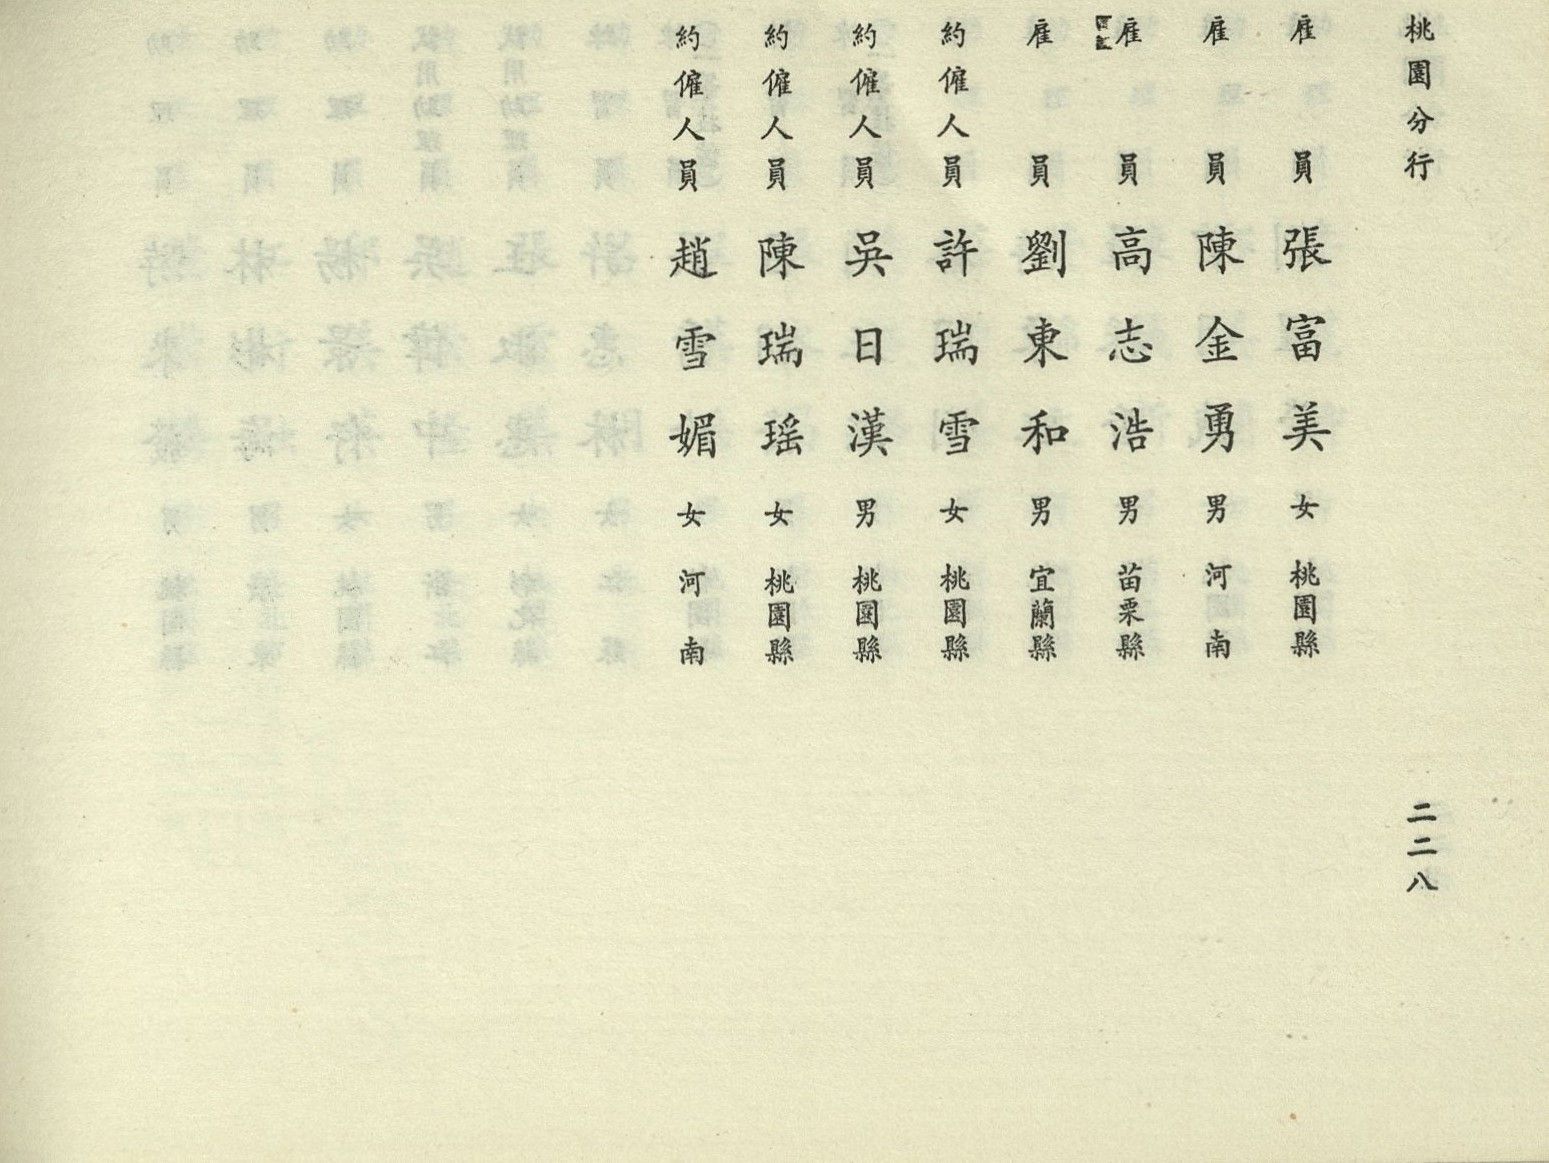 桃園分行
二二八
雇員張富美女桃園縣
雇員陳金勇男河南
雇員高志浩男苗栗縣
雇員劉東和男宜蘭縣
約僱人員許瑞雪女桃園縣
約僱人員吳日漢男桃園縣
約僱人員陳瑞瑤女桃園縣
約僱人員趙雪媚女河南